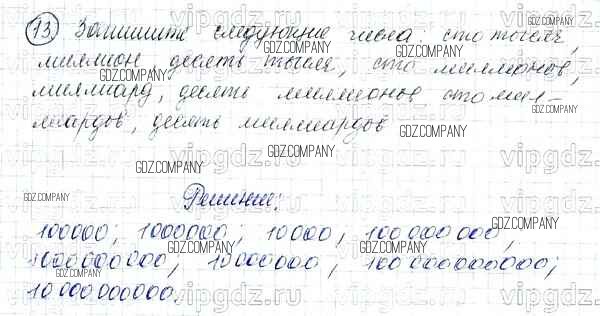 13 Запишите следующие числа: сто тысяч,
миллион, десять тысяч, сто миллионов,
миллиард, десять миллионов сто мил-
лиардов, десять миллиардов
Решение:
100000; 1000000; 10000, 100 000 000,
1000000000, 10000000, 100 000000000;
10 000000000.